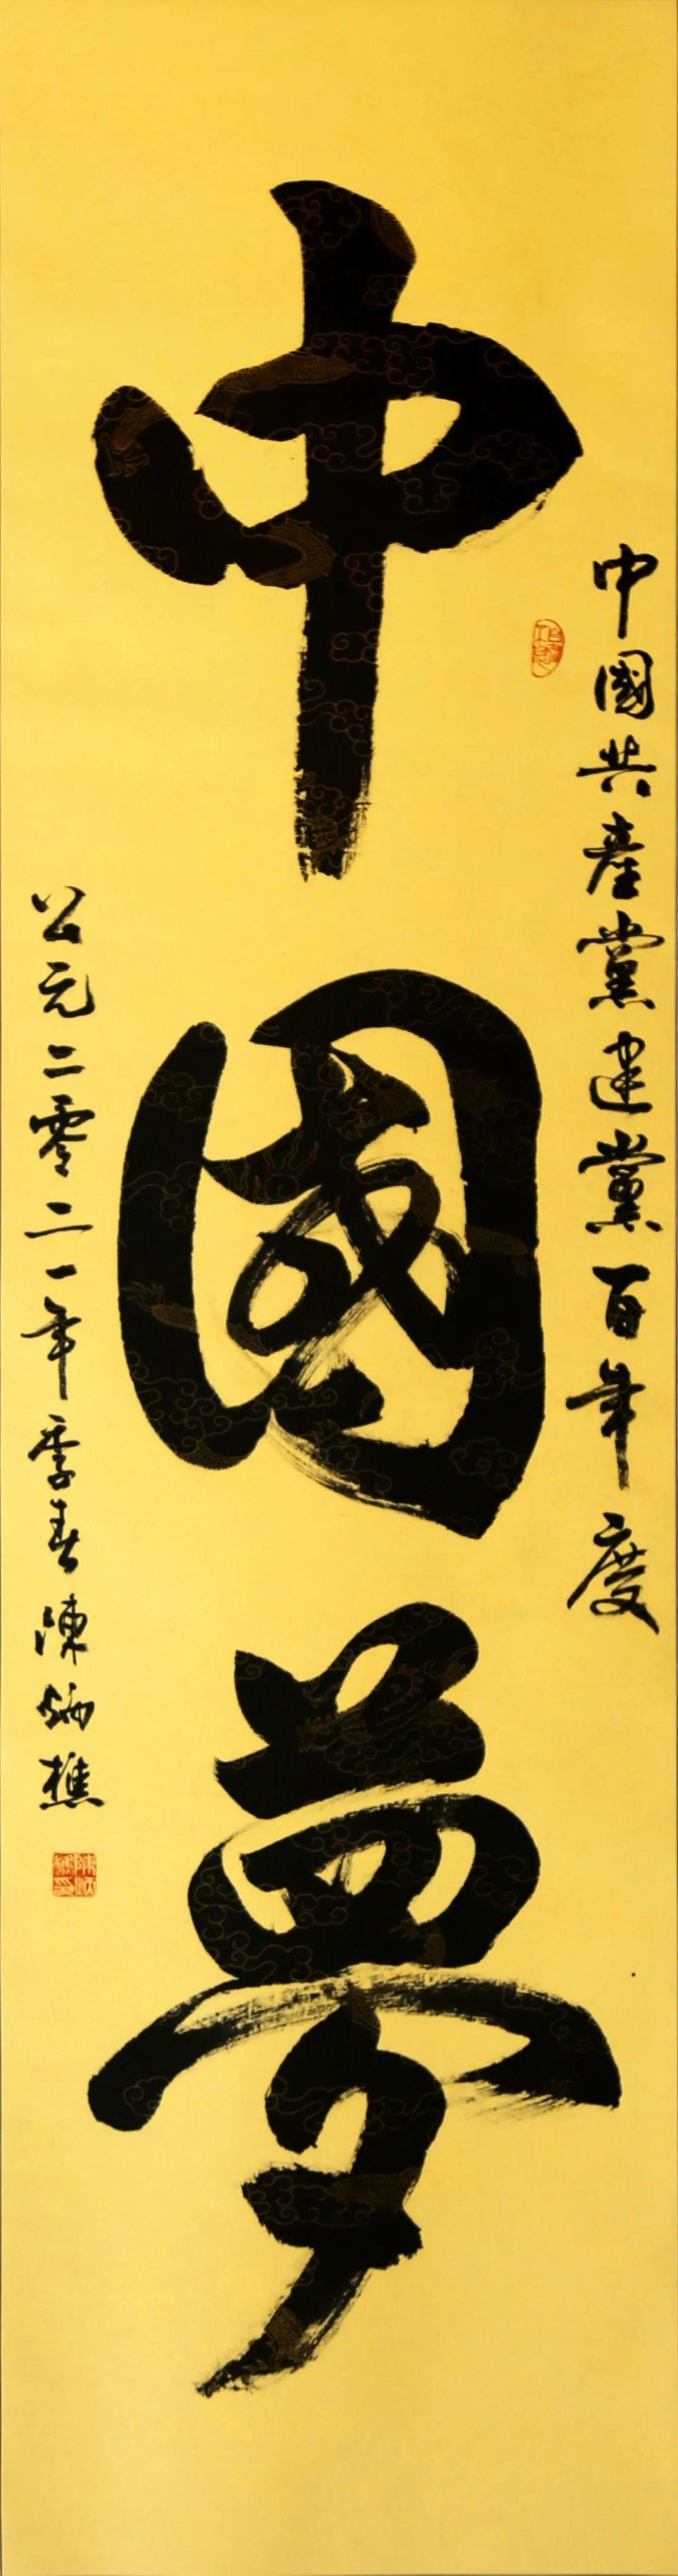 中國共產黨建黨百年度
中國夢
公元二零二一年季春陳炳樵